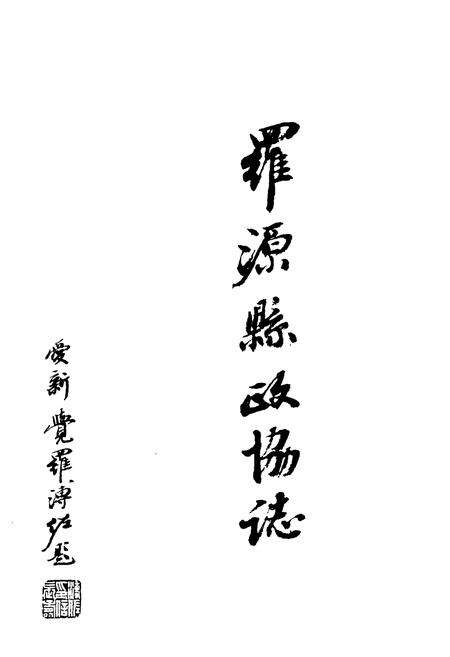 羅源縣政協誌
愛新覺羅溥佐題